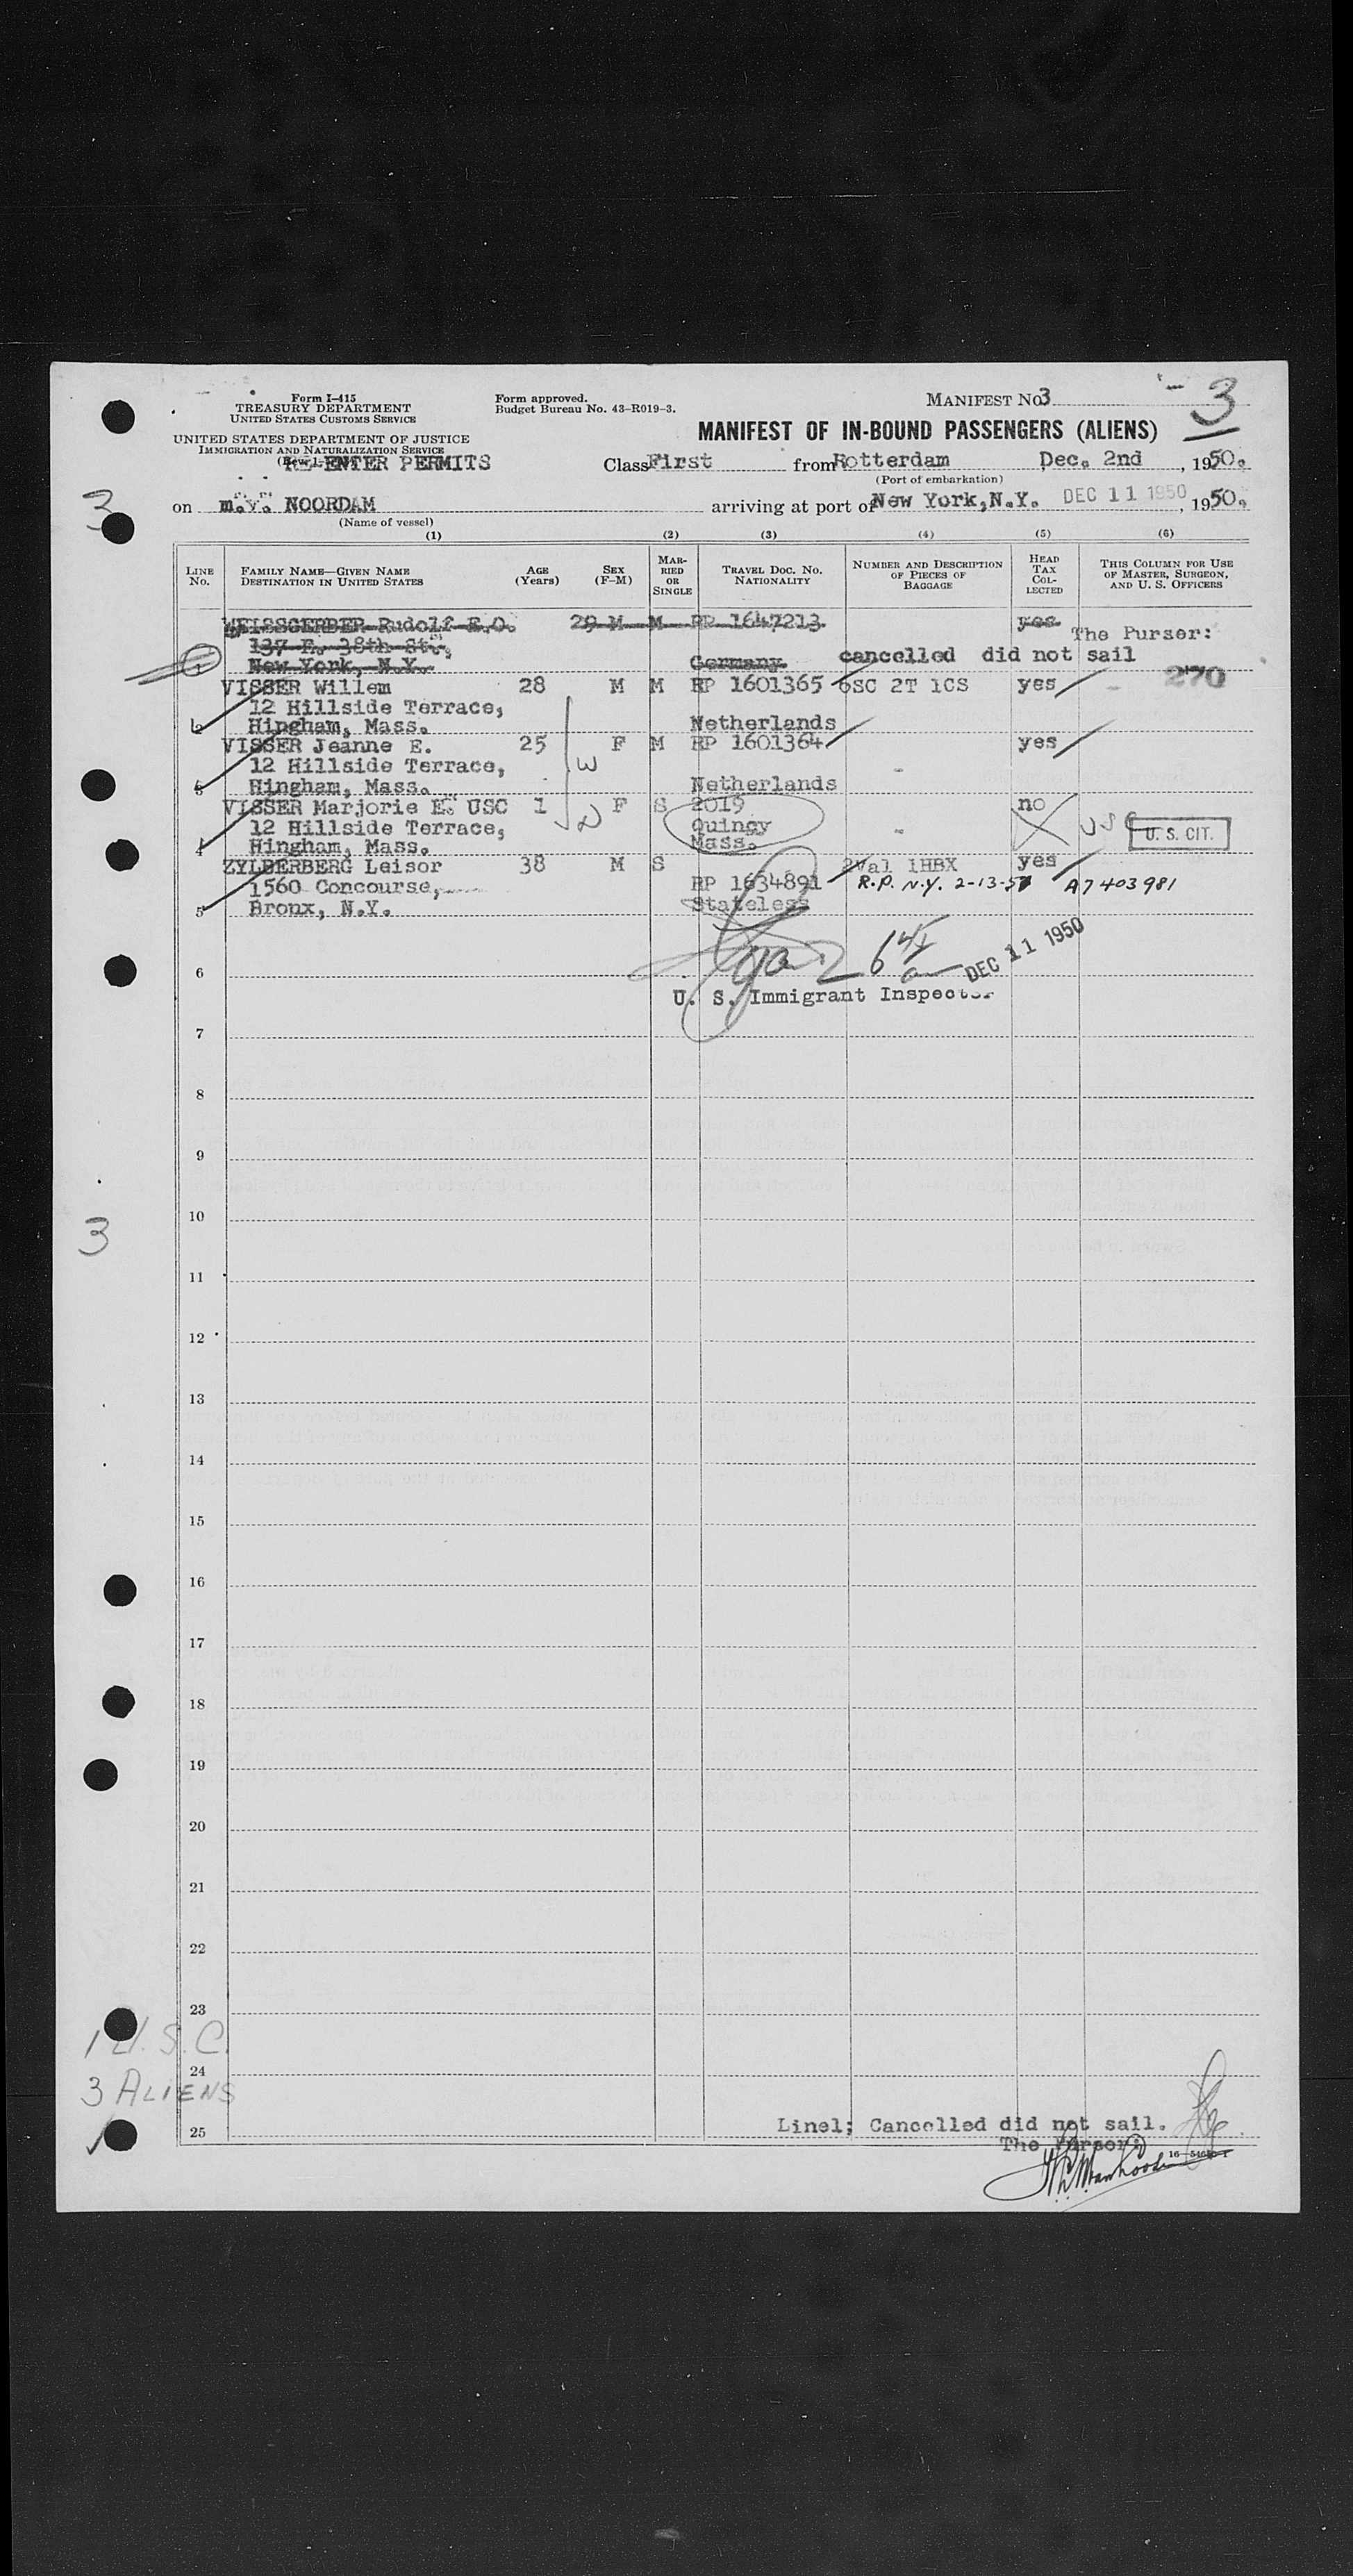 Form I-415
TREASURY DEPARTMENT
UNITED STATES CUSTOMS SERVICE
UNITED STATES DEPARTMENT OF JUSTICE
IMMIGRATION AND NATURALIZATION SERVICE
RE-ENTER PERMITS
Form approved.
Budget Bureau No. 43-R019-3.
MANIFEST No 3
3
MANIFEST OF IN-BOUND PASSENGERS (ALIENS)
Class First from Rotterdam Dec. 2nd, 1950.
(Port of embarkation)
3
on m.v. NOORDAM arriving at port of New York, N.Y. DEC 11 1950, 1950.
(Name of vessel)
(1) (2) (3) (4) (5) (6)
LINE No.
FAMILY NAME—GIVEN NAME
DESTINATION IN UNITED STATES
AGE (Years)
SEX (F-M)
MARRIED OR SINGLE
TRAVEL DOC. No.
NATIONALITY
NUMBER AND DESCRIPTION OF PIECES OF BAGGAGE
HEAD TAX COLLECTED
THIS COLUMN FOR USE OF MASTER, SURGEON, AND U. S. OFFICERS
WEISSGERBER Rudolf E.O. 29 M M RP 1647213 yes
137 E. 38th St., The Purser:
1 New York, N.Y. Germany cancelled did not sail
270
VISSER Willem 28 M M RP 1601365 6SC 2T 1CS yes
12 Hillside Terrace,
2 Hingham, Mass. Netherlands
VISSER Jeanne E. 25 F M RP 1601364 yes
12 Hillside Terrace, W -
3 Hingham, Mass. Netherlands
VISSER Marjorie E. USC 1 F S 2019 no
12 Hillside Terrace, D Quincy - USC U. S. CIT.
4 Hingham, Mass. Mass.
ZYLBERBERG Leisor 38 M S 2Val 1HBX yes
1560 Concourse, RP 1634891 R.P. N.Y. 2-13-51 A7 403 981
5 Bronx, N.Y. Stateless
6 DEC 11 1950
U. S. Immigrant Inspector
7
8
9
10
3
11
12
13
14
15
16
17
18
19
20
21
22
23
1 U.S.C.
24
3 ALIENS
25 Line1; Cancelled did not sail.
The Purser: